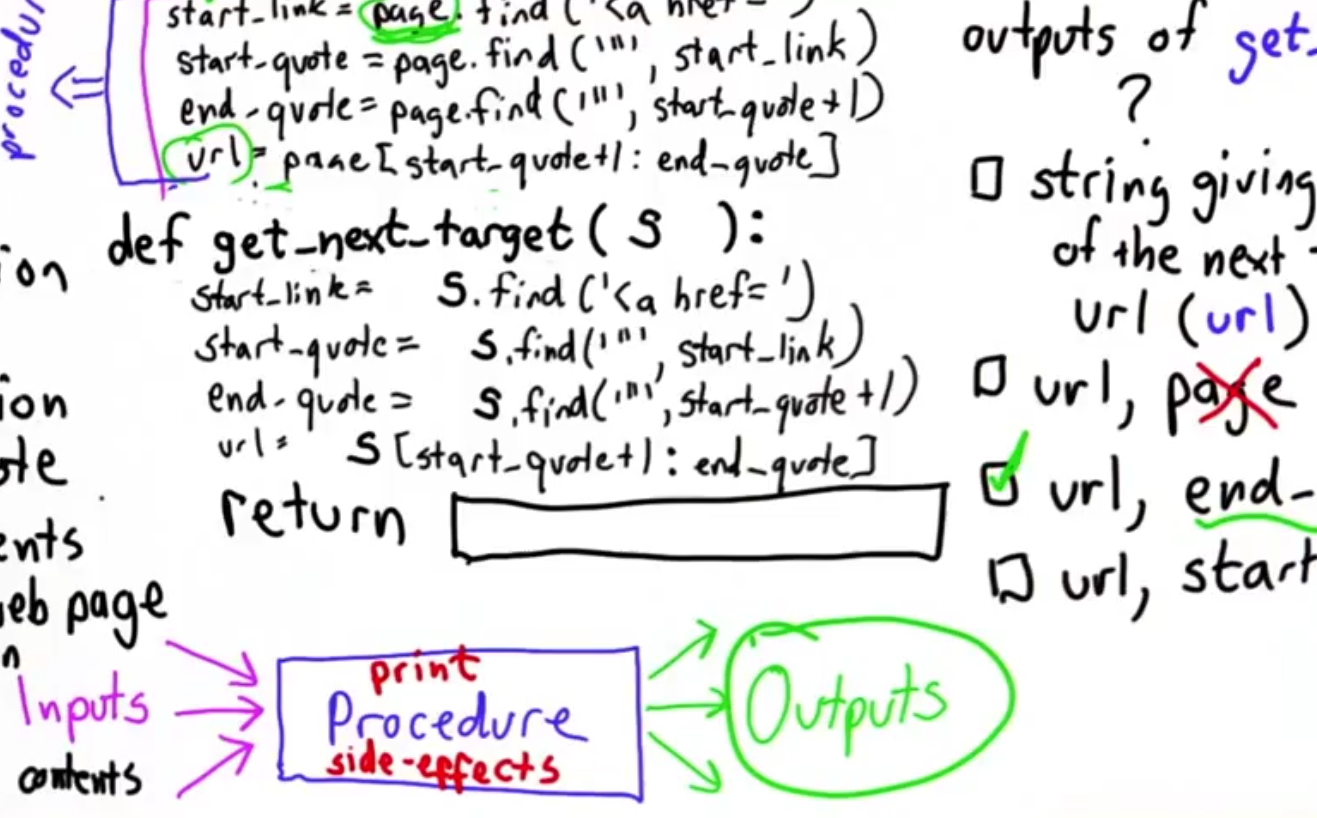 procedur
start_link = page.find('<a href=')
start_quote = page.find('"', start_link)
end_quote = page.find('"', start_quote+1)
url = page[start_quote+1: end_quote]
def get_next_target( S ):
start_link = S.find('<a href=')
start_quote = S.find('"', start_link)
end_quote = S.find('"', start_quote+1)
url = S[start_quote+1: end_quote]
return
print
Procedure
side-effects
Inputs
contents
Outputs
ion
ion
ents
eb page
n
outputs of get_
?
string giving
of the next
url (url)
url, page
url, end-
url, start